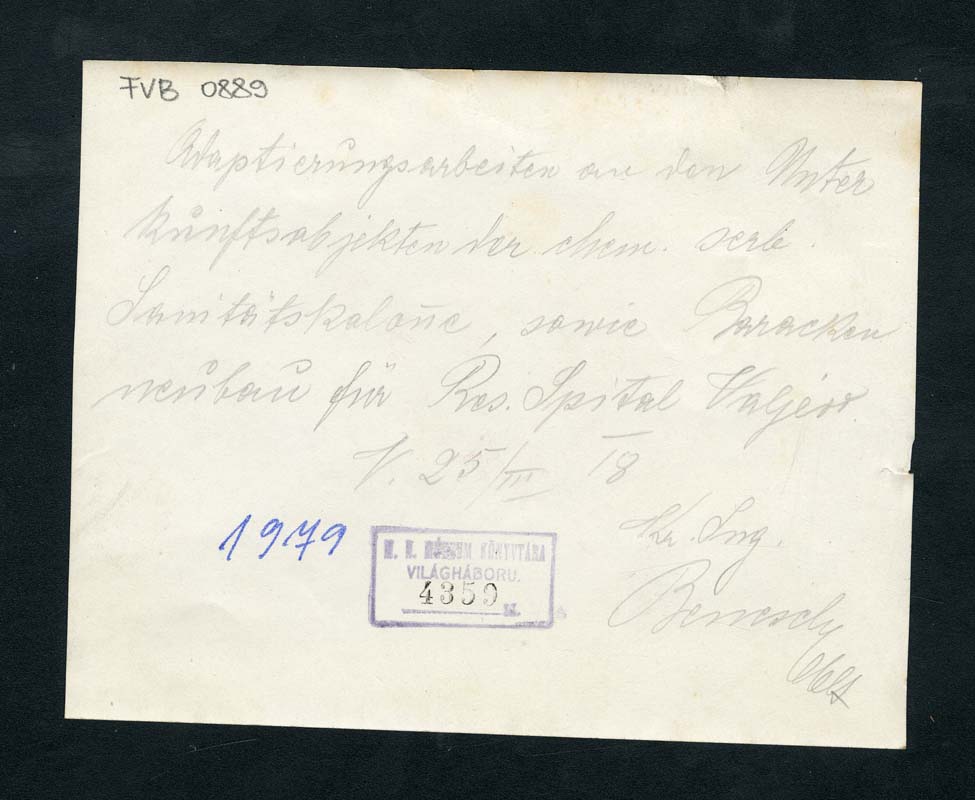 FVB 0889
Adaptierungsarbeiten an den Unter
kunftsobjekten der ehem. serb.
Sanitätskolone, sowie Baracken
neubau für Res. Spital Valjevo.
V. 25/III 18
Ing.
Benesch
1979
KÖNYVTÁRA
VILÁGHÁBORU.
4359